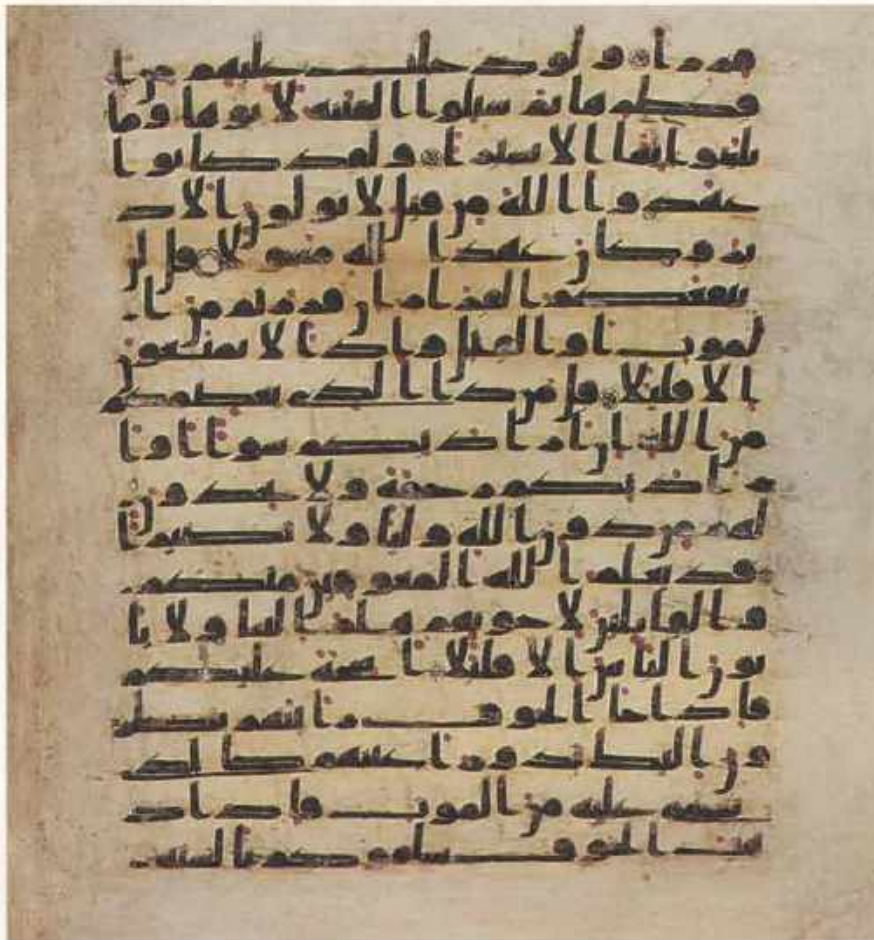 فرارا ولو دخلت عليهم من ا
قطرها ثم سيلوا الفتنه لاتوها وما
تلبثوا بها الا يسيرا ولقد كانوا
عهدوا الله من قبل لا يولون الاد
بر وكان عهد الله مسولا قل لن
ينفعكم الفرار ان فررتم من ا
لموت او القتل واذا لا تمتعون
الا قليلا قل من ذا الذي يعصمكم
من الله ان اراد بكم سوا او ا
راد بكم رحمة ولا يجدون
لهم من دون الله وليا ولا نصيرا
قد يعلم الله المعوقين منكم
والقايلين لاخونهم هلم الينا ولا يا
تون الباس الا قليلا اشحة عليكم
فاذا جا الخوف رايتهم ينظر
ون اليك تدور اعينهم كالذي
يغشى عليه من الموت فاذا ذ
هب الخوف سلقوكم بالسنة